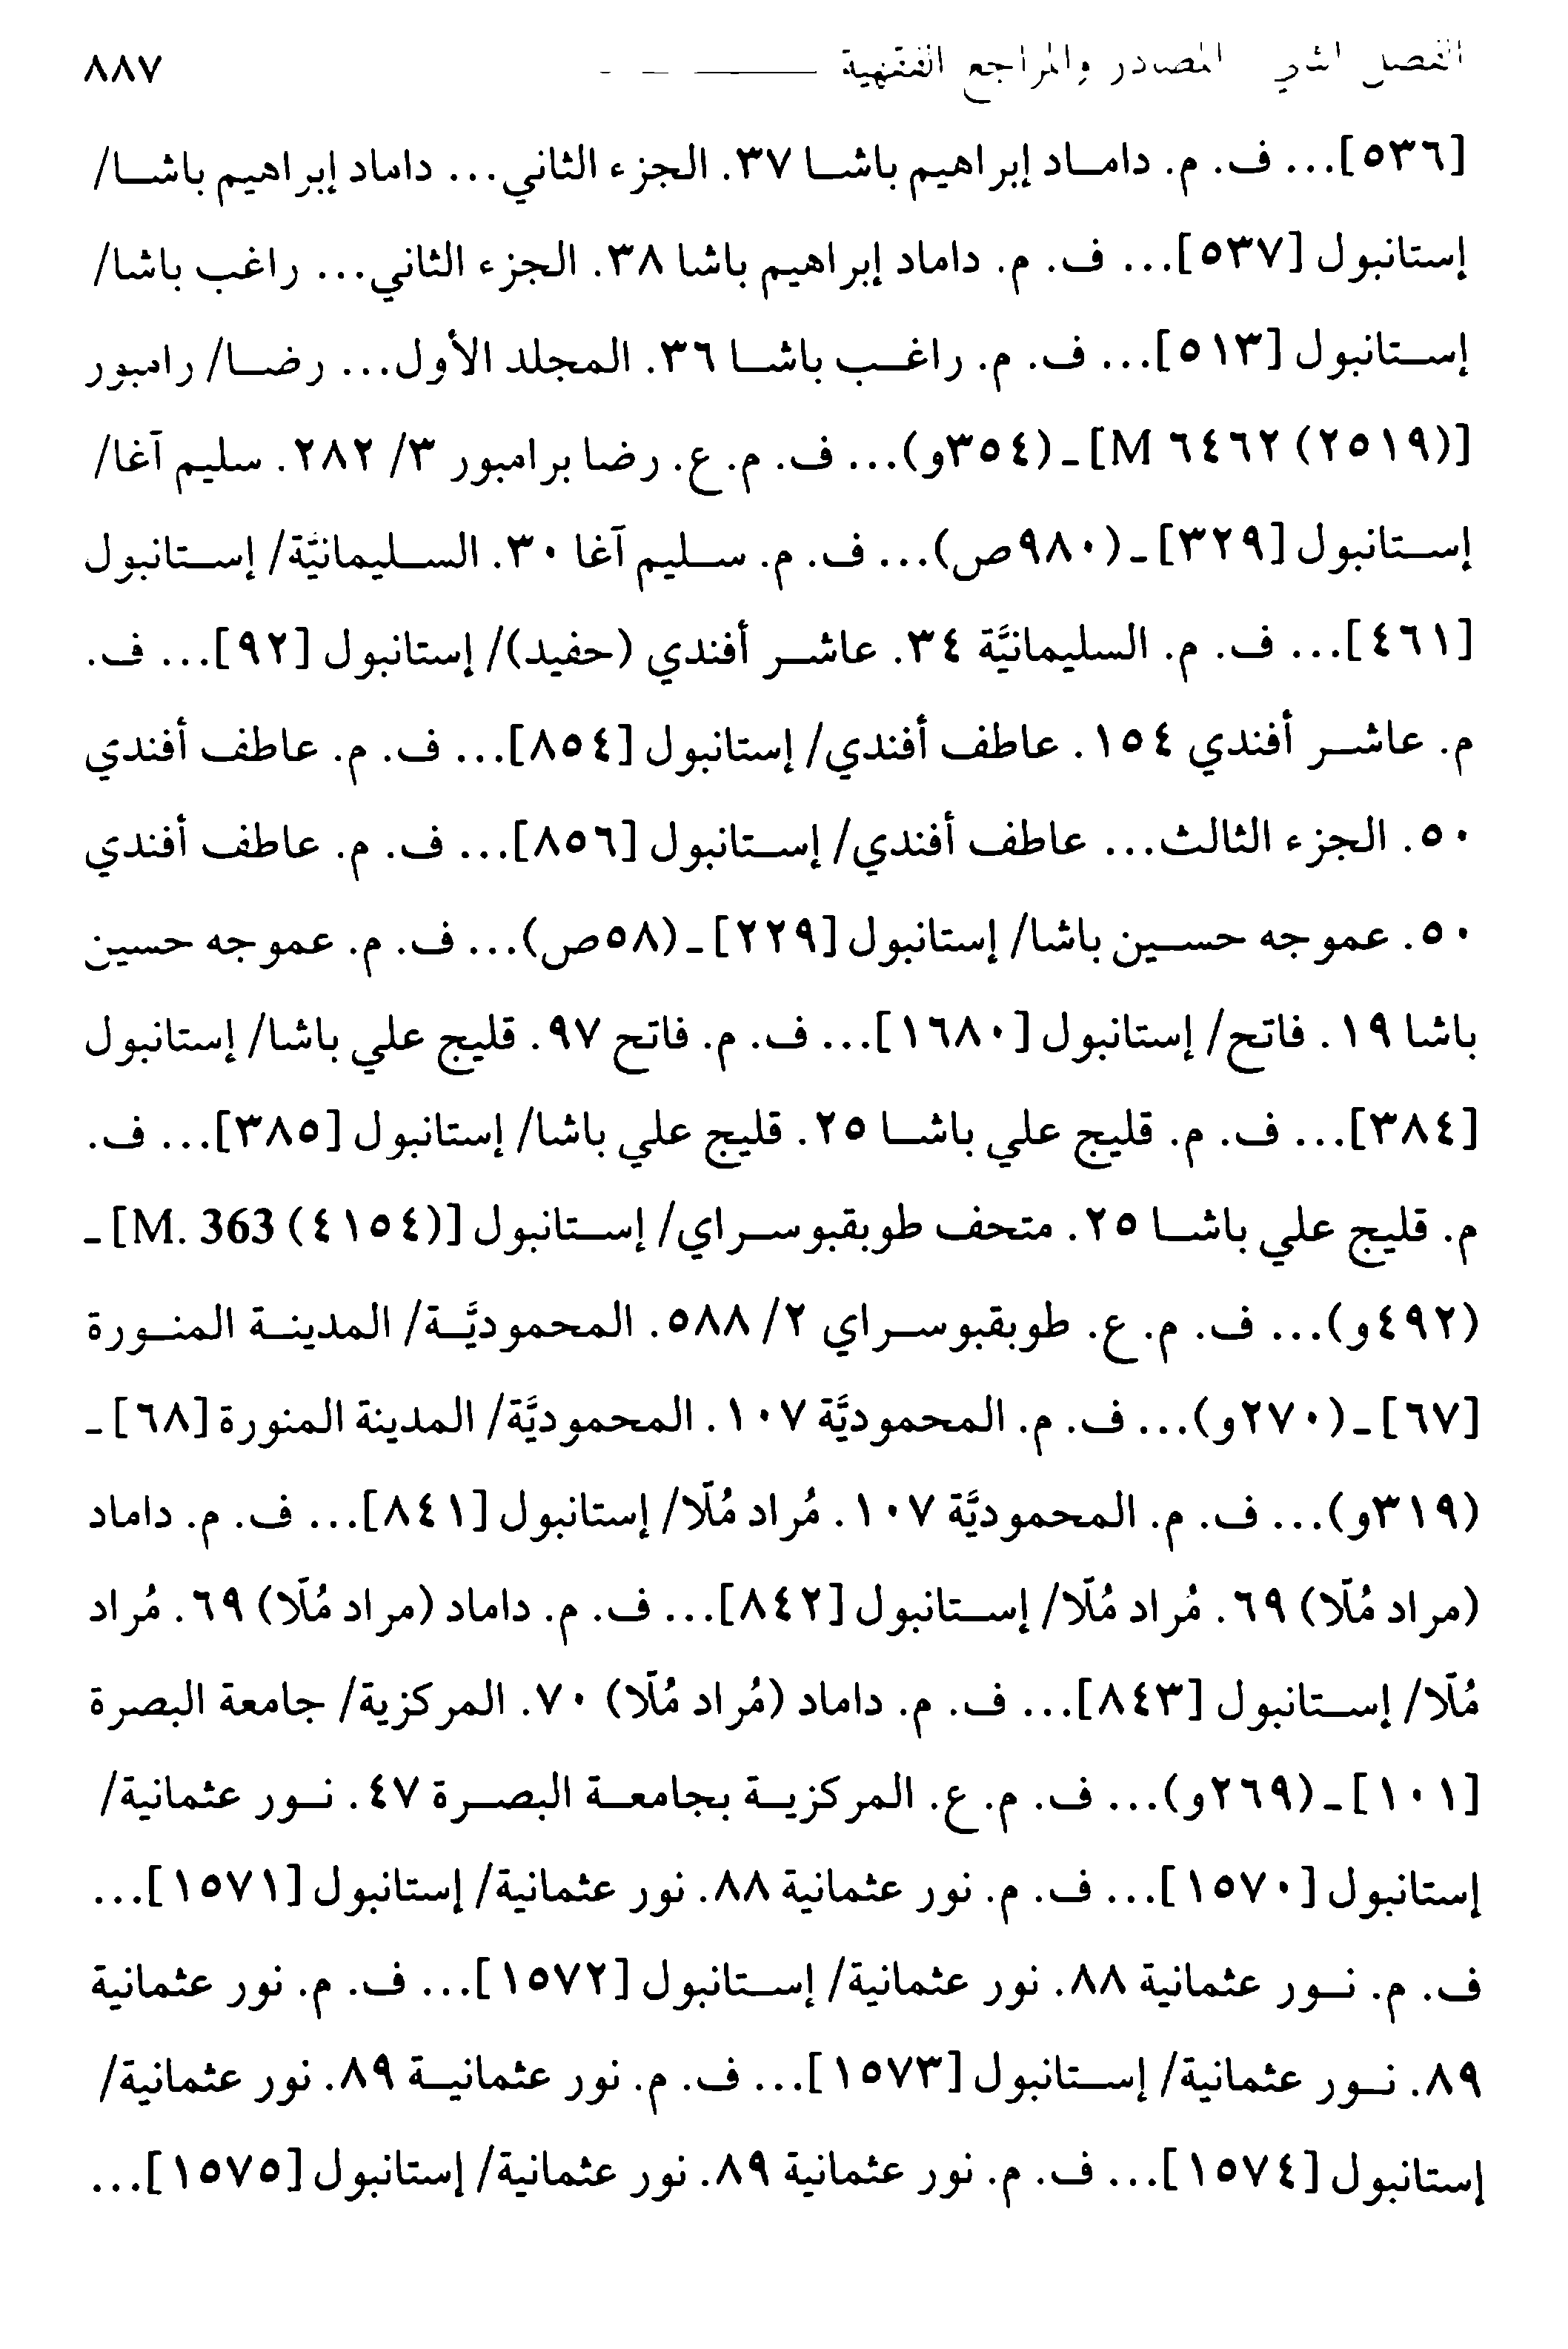 الفصل الثاني المصادر والمراجع الفقهية ٨٨٧
[٥٣٦]... ف. م. داماد إبراهيم باشا ٣٧. الجزء الثاني... داماد إبراهيم باشا/
إستانبول [٥٣٧]... ف. م. داماد إبراهيم باشا ٣٨. الجزء الثاني... راغب باشا/
إستانبول [٥١٣]... ف. م. راغب باشا ٣٦. المجلد الأول... رضا/ رامبور
[(٢٥١٩) M ٦٤٦٢] ـ (٣٥٤و)... ف. م. ع. رضا برامبور ٣/ ٢٨٢. سليم آغا/
إستانبول [٣٢٩] ـ (٩٨٠ص)... ف. م. سليم آغا ٣٠. السليمانيَّة/ إستانبول
[٤٦١]... ف. م. السليمانيَّة ٣٤. عاشر أفندي (حفيد)/ إستانبول [٩٢]... ف.
م. عاشر أفندي ١٥٤. عاطف أفندي/ إستانبول [٨٥٤]... ف. م. عاطف أفندي
٥٠. الجزء الثالث... عاطف أفندي/ إستانبول [٨٥٦]... ف. م. عاطف أفندي
٥٠. عموجه حسين باشا/ إستانبول [٢٢٩] ـ (٥٨ص)... ف. م. عموجه حسين
باشا ١٩. فاتح/ إستانبول [١٦٨٠]... ف. م. فاتح ٩٧. قليج علي باشا/ إستانبول
[٣٨٤]... ف. م. قليج علي باشا ٢٥. قليج علي باشا/ إستانبول [٣٨٥]... ف.
م. قليج علي باشا ٢٥. متحف طوبقبوسراي/ إستانبول [(٤١٥٤) M. 363] ـ
(٤٩٢و)... ف. م. ع. طوبقبوسراي ٢/ ٥٨٨. المحموديَّة/ المدينة المنورة
[٦٧] ـ (٢٧٠و)... ف. م. المحموديَّة ١٠٧. المحموديَّة/ المدينة المنورة [٦٨] ـ
(٣١٩و)... ف. م. المحموديَّة ١٠٧. مُراد مُلّا/ إستانبول [٨٤١]... ف. م. داماد
(مراد مُلّا) ٦٩. مُراد مُلّا/ إستانبول [٨٤٢]... ف. م. داماد (مراد مُلّا) ٦٩. مُراد
مُلّا/ إستانبول [٨٤٣]... ف. م. داماد (مُراد مُلّا) ٧٠. المركزية/ جامعة البصرة
[١٠١] ـ (٢٦٩و)... ف. م. ع. المركزية بجامعة البصرة ٤٧. نور عثمانية/
إستانبول [١٥٧٠]... ف. م. نور عثمانية ٨٨. نور عثمانية/ إستانبول [١٥٧١]...
ف. م. نور عثمانية ٨٨. نور عثمانية/ إستانبول [١٥٧٢]... ف. م. نور عثمانية
٨٩. نور عثمانية/ إستانبول [١٥٧٣]... ف. م. نور عثمانية ٨٩. نور عثمانية/
إستانبول [١٥٧٤]... ف. م. نور عثمانية ٨٩. نور عثمانية/ إستانبول [١٥٧٥]...